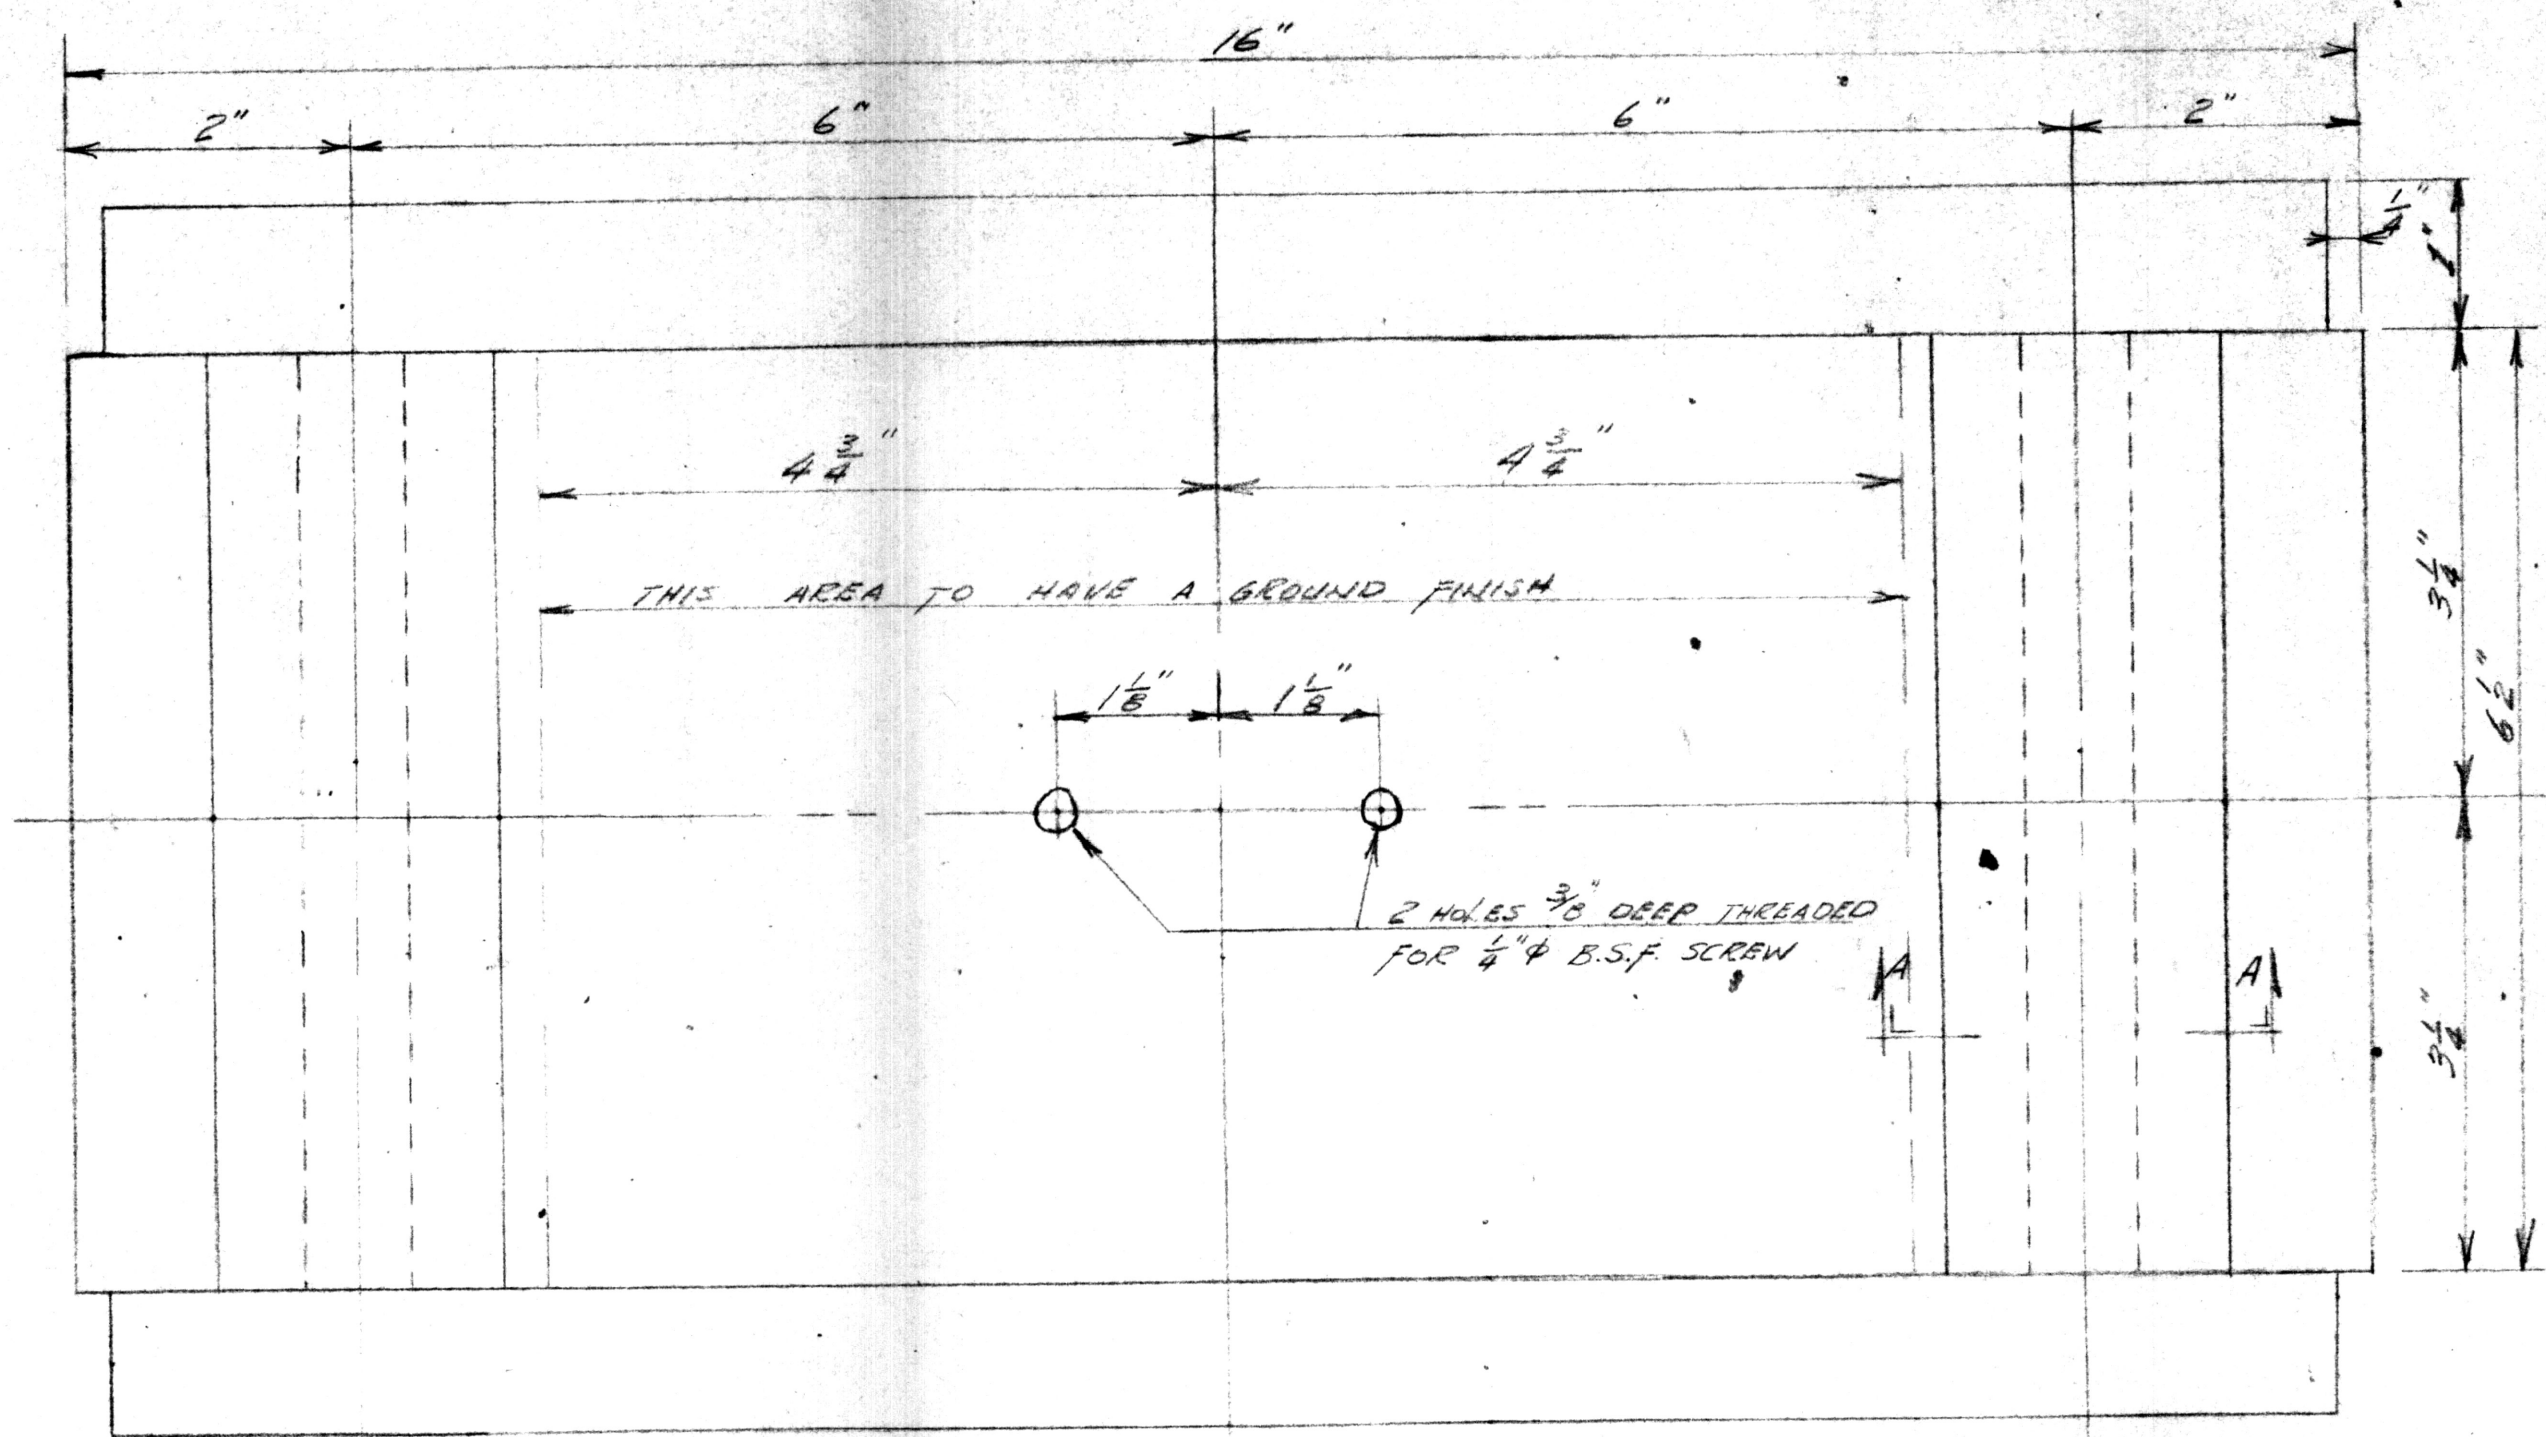 16"
2" 6" 6" 2"
1/4"
1"
4 3/4" 4 3/4"
3 1/4"
THIS AREA TO HAVE A GROUND FINISH
6 1/2"
1 1/8" 1 1/8"
2 HOLES 3/8" DEEP THREADED
FOR 1/4" ϕ B.S.F. SCREW
A A
3 1/4"